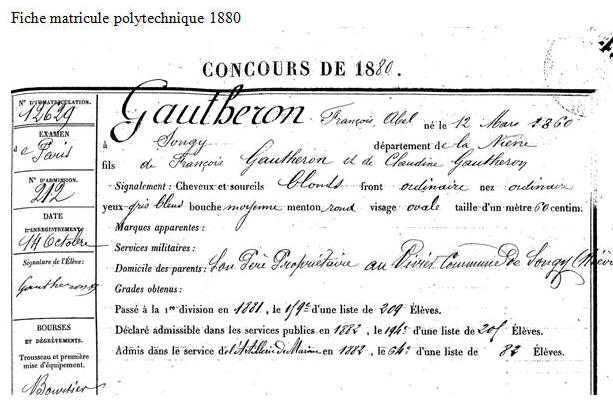 Fiche matricule polytechnique 1880
CONCOURS DE 1880.
N° D'IMMATRICULATION.
12629
EXAMEN
à
Paris
N° D'ADMISSION.
212
DATE
D'ENREGISTREMENT:
14 Octobre
Signature de l'Élève:
Gautheron
BOURSES
ET DÉGRÈVEMENTS.
Trousseau et première
mise d'équipement.
Boursier
Gautheron François, Abel né le 12 Mars 1860
à Songy département de la Nièvre
fils de François Gautheron et de Claudine Gautheron
Signalement: Cheveux et sourcils blonds front ordinaire nez ordinaire
yeux gris bleus bouche moyenne menton rond visage ovale taille d'un mètre 60 centim.
Marques apparentes:
Services militaires:
Domicile des parents: Son Père Propriétaire au Commune de Songy (Nièv
Grades obtenus:
Passé à la 1re division en 1881, le 159e d'une liste de 209 Élèves.
Déclaré admissible dans les services publics en 1882, le 194e d'une liste de 205 Élèves.
Admis dans le service de l'Artillerie de Marine en 1882, le 64e d'une liste de 82 Élèves.